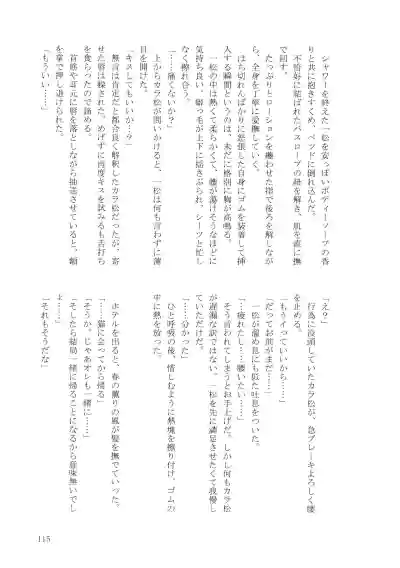 シャワーを終えた一松を安っぽいボディーソープの香
りと共に抱きすくめ、ベッドに倒れ込んだ。
不恰好に結ばれたバスローブの紐を解き、肌を直に撫
で回す。
たっぷりとローションを纏わせた指で後ろを解しなが
ら、全身を丁寧に愛撫していく。
はち切れんばかりに怒張した自身にゴムを装着して挿
入する瞬間というのは、未だに格別に胸が高鳴る。
一松の中は熱くて柔らかくて、腰が蕩けそうなほどに
気持ち良い。癖っ毛が上下に揺さぶられ、シーツと忙し
なく擦れ合う。
「……痛くないか？」
上からカラ松が問いかけると、一松は何も言わずに薄
目を開けた。
「キスしてもいいか…？」
無言は肯定だと都合良く解釈したカラ松だったが、寄
せた唇は躱された。めげずに再度キスを試みるも舌打ち
を食らったので諦める。
首筋や耳元に唇を落としながら抽送させていると、額
を掌で押し退けられた。
「もういい……」
「え？」
行為に没頭していたカラ松が、急ブレーキよろしく腰
を止める。
「もうイっていいから……」
「だってお前がまだ……」
一松が溜め息にも似た吐息をついた。
「……疲れたし……腰いたい……」
そう言われてしまうとお手上げだ。しかし何もカラ松
が遅漏な訳ではない。一松を先に満足させたくて我慢し
ていただけだ。
「……分かった」
ひと呼吸の後、惜しむように熱塊を擦り付け、ゴムの
中に熱を放った。
ホテルを出ると、春の薫りの風が髪を撫でていった。
「……猫に会ってから帰る」
「そうか。じゃあオレも一緒に……」
「そしたら結局一緒に帰ることになるから意味無いでし
ょ……」
「それもそうだな」
115